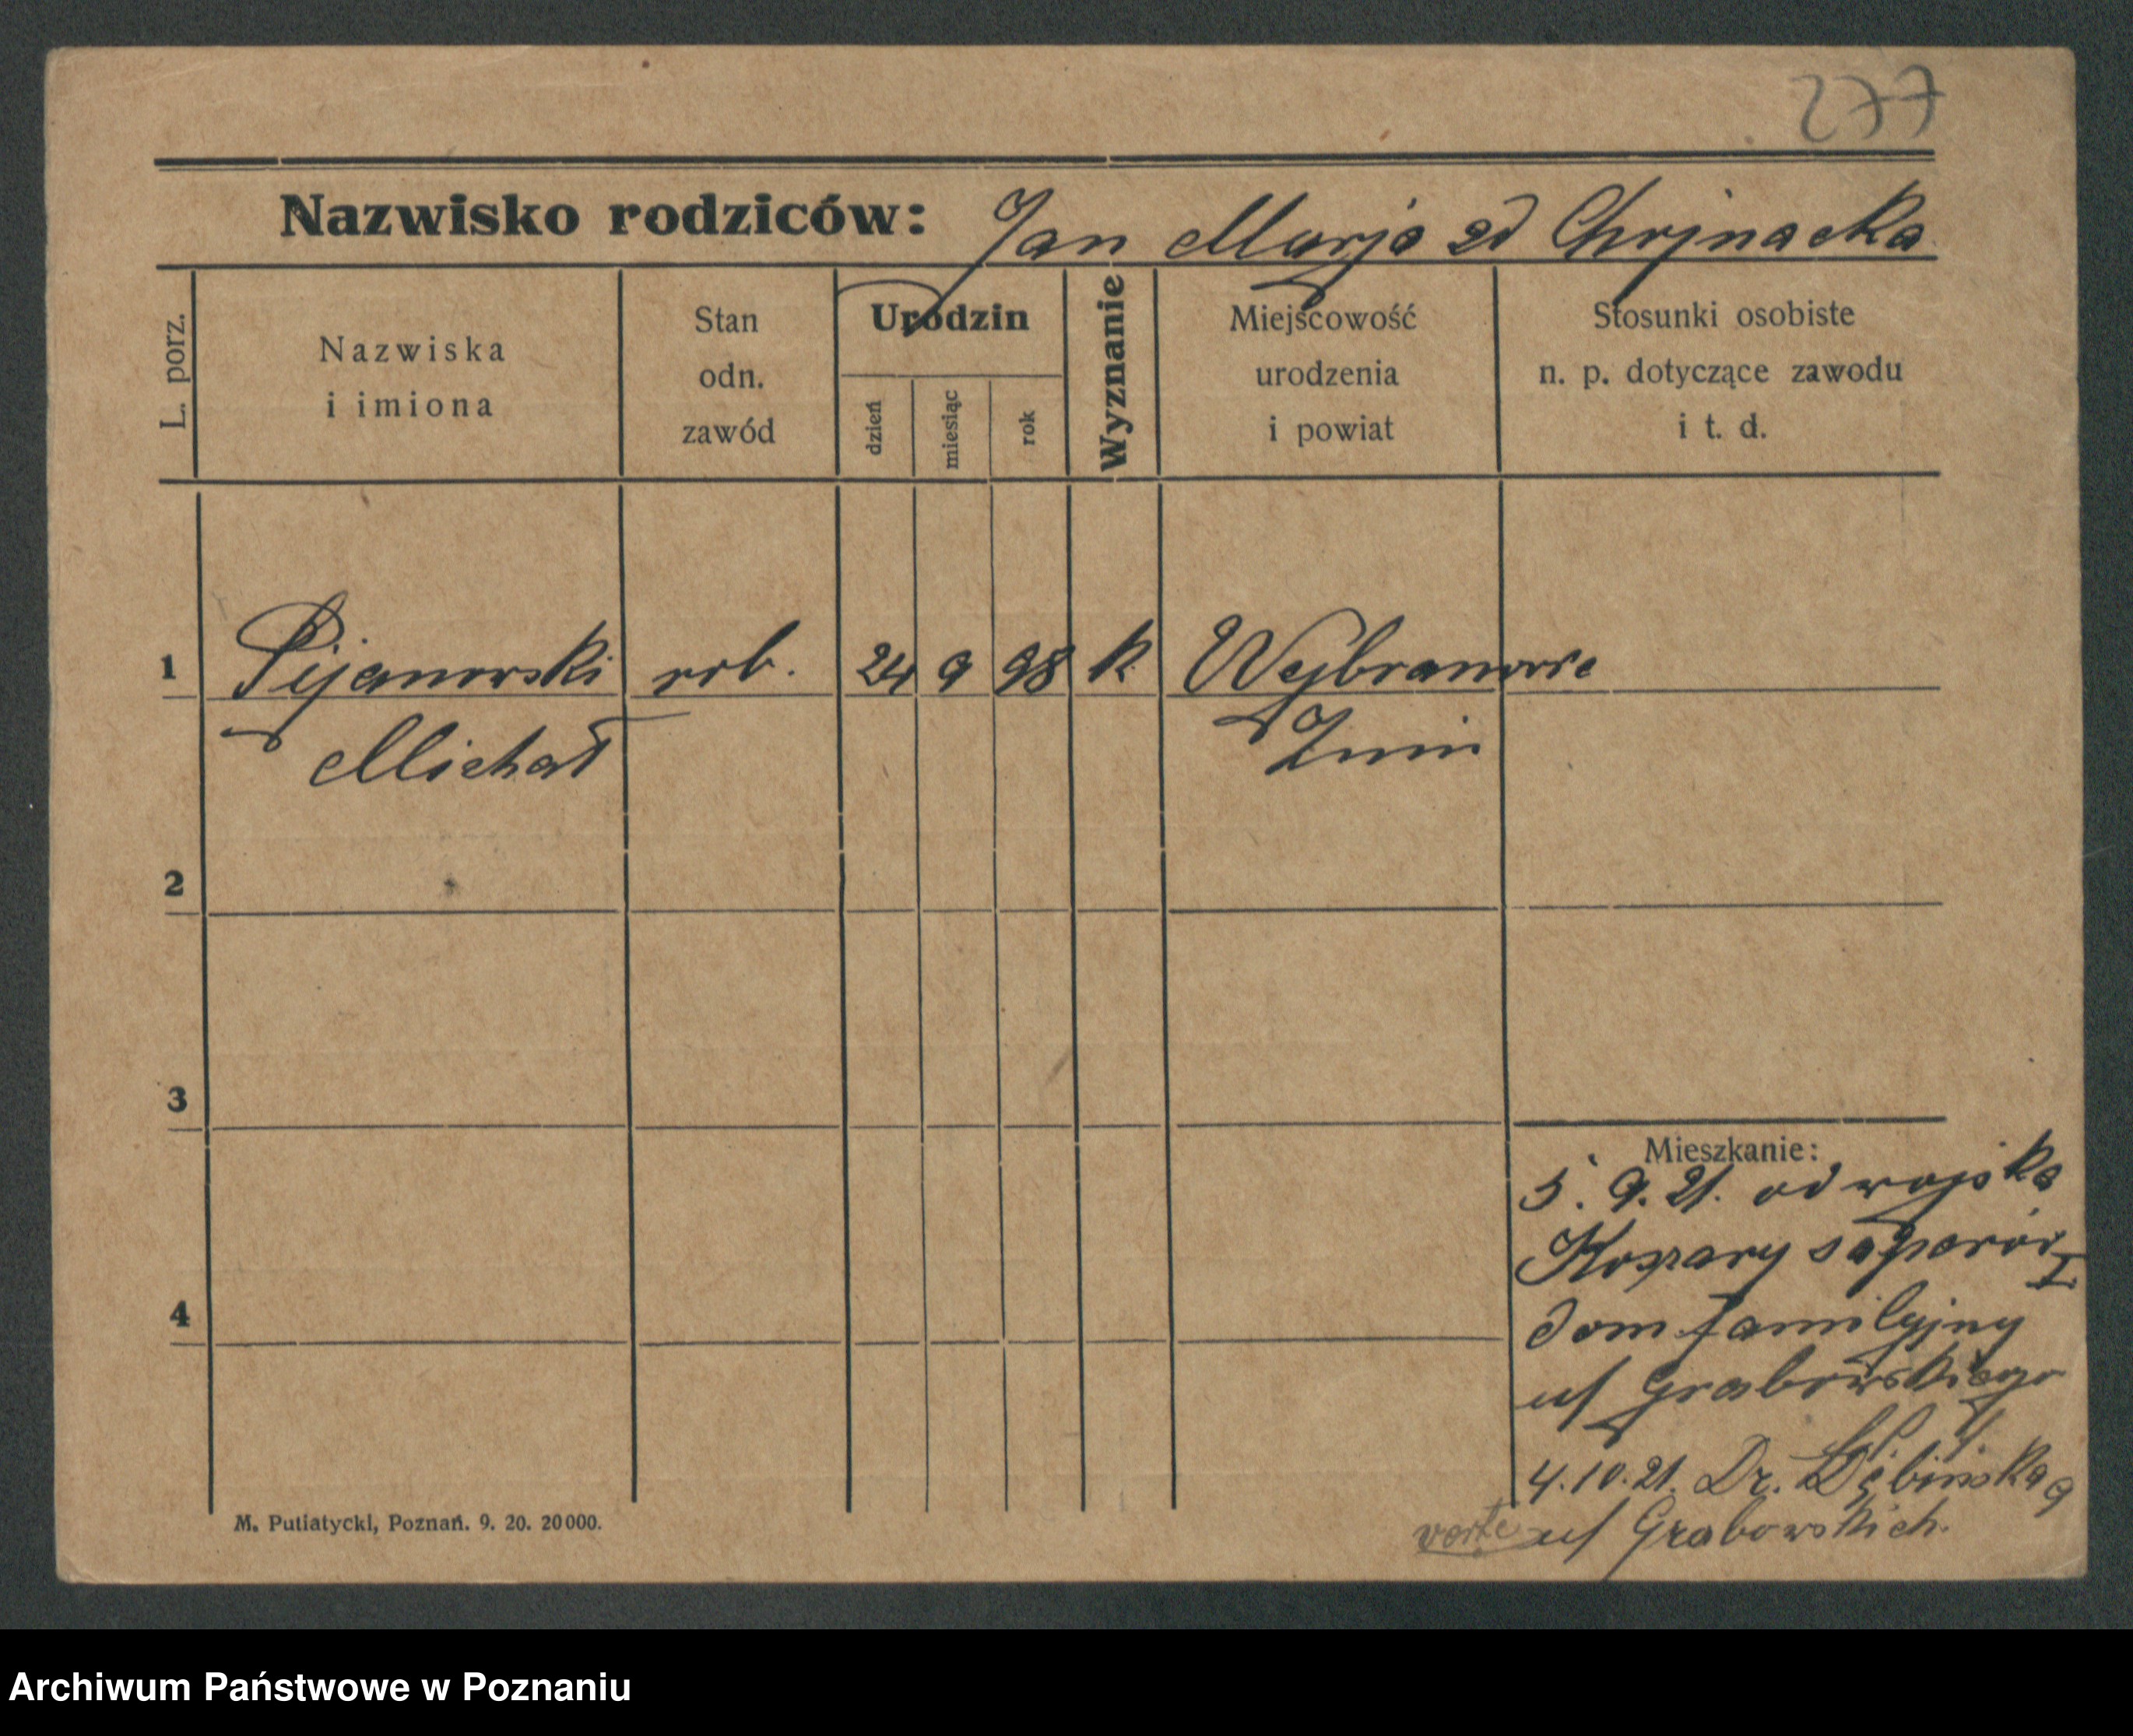 277
Nazwisko rodziców: Jan Marja zd Chojnacka
L. porz.
Nazwiska
i imiona
Stan
odn.
zawód
Urodzin
dzień
miesiąc
rok
Wyznanie
Miejscowość
urodzenia
i powiat
Stosunki osobiste
n. p. dotyczące zawodu
i t. d.
1 Pijanowski rob. 24 9 98 k.
Michał Żnin
2
3
4
Mieszkanie:
5. 9. 21. od wojska
Koszary saperów
dom familyjny
ul Grabowskiego
4.10.21. Dr.
verte ul Grabowskich.
M. Putiatycki, Poznań. 9. 20. 20000.
Archiwum Państwowe w Poznaniu